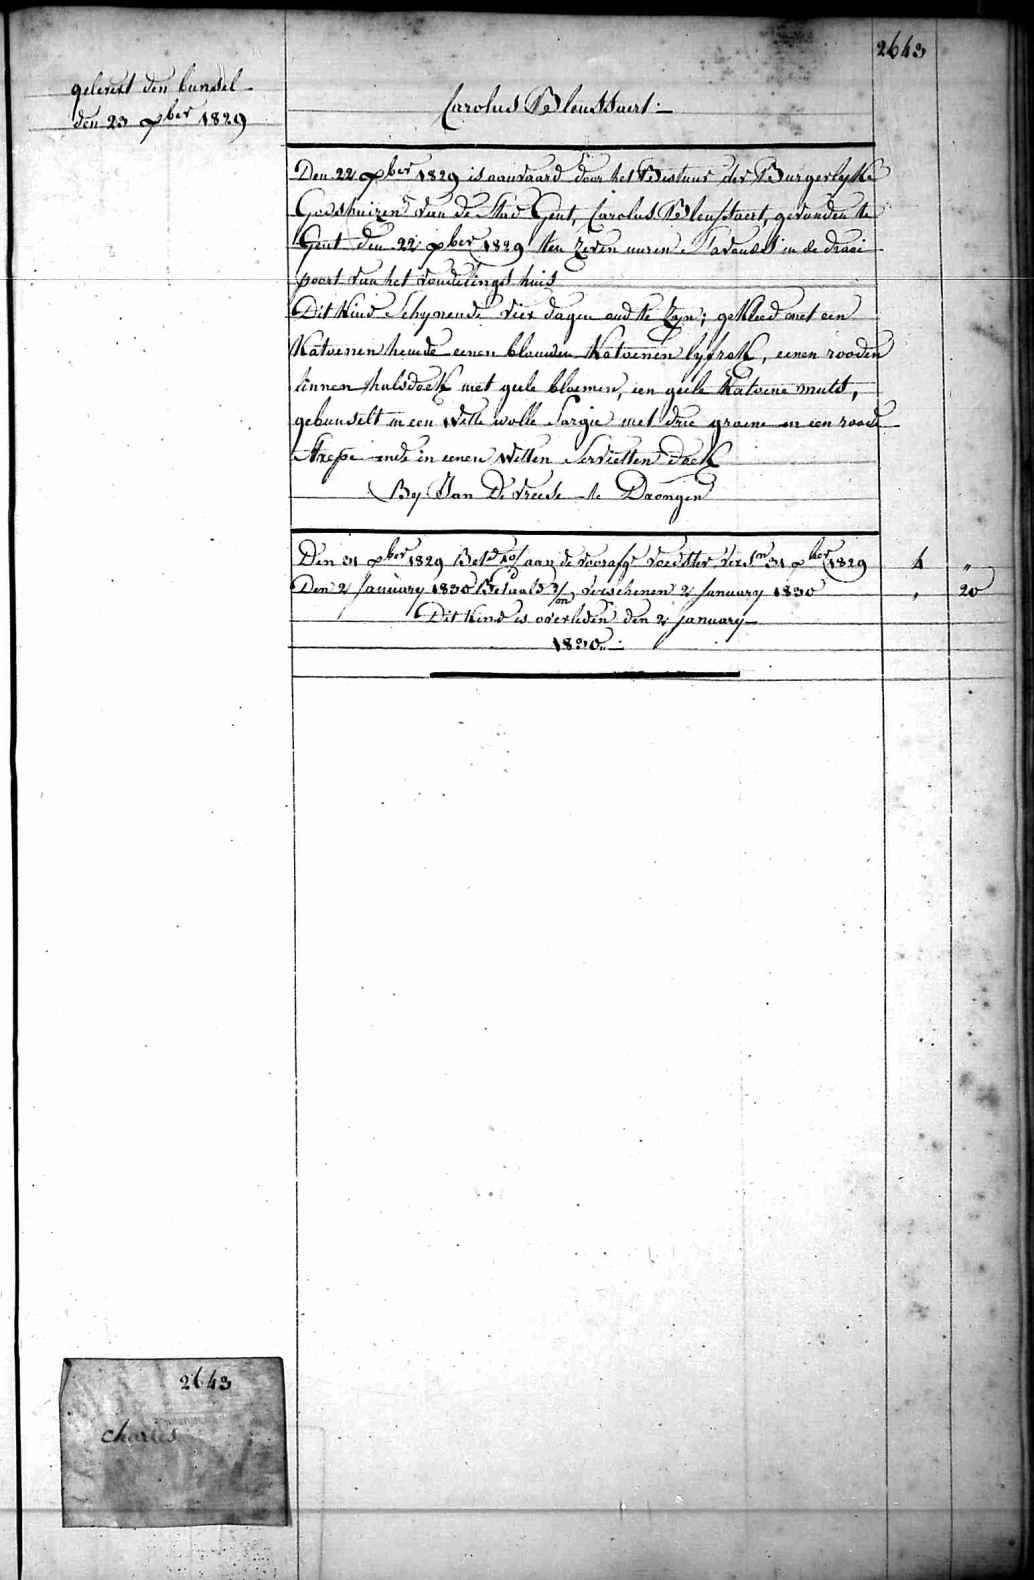 2643
gelevert den bunsel
den 23 xber 1829
Carolus Bleussaert
Den 22 xber 1829 is aanvaard door het Bestuur der Burgerlyke
Godshuizen van de Stad Gent, Carolus Bleussaert, gevonden te
Gent den 22 xber 1829 ten zeven uuren s'avonds in de draai
poort van het vondelingshuis
Dit Kind Schynende vier dagen oud te zyn; gekleed met een
Katoenen hemde eenen blauwen Katoenen lyfrok, eenen rooden
linnen halsdoek met geele bloemen, een geele Katoene muts,
gebunselt in een Witte wolle Sargie met drie groene en een roode
strepe ende in eenen Witten Servietten doek
By Jan De vreese te Drongen
Den 31 xber 1829 Beld aan de voorsge voedster versn 31 xber 1829 4 "
Den 2 January 1830 Betaald verschenen 2 January 1830 , 20
Dit Kind is overleden den 2 January
1830
2643
charles